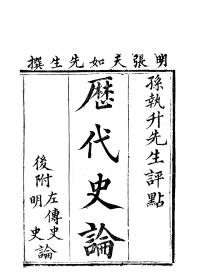 明張天如先生撰
孫執升先生評點
歷代史論
後附
左傳史論
明史論